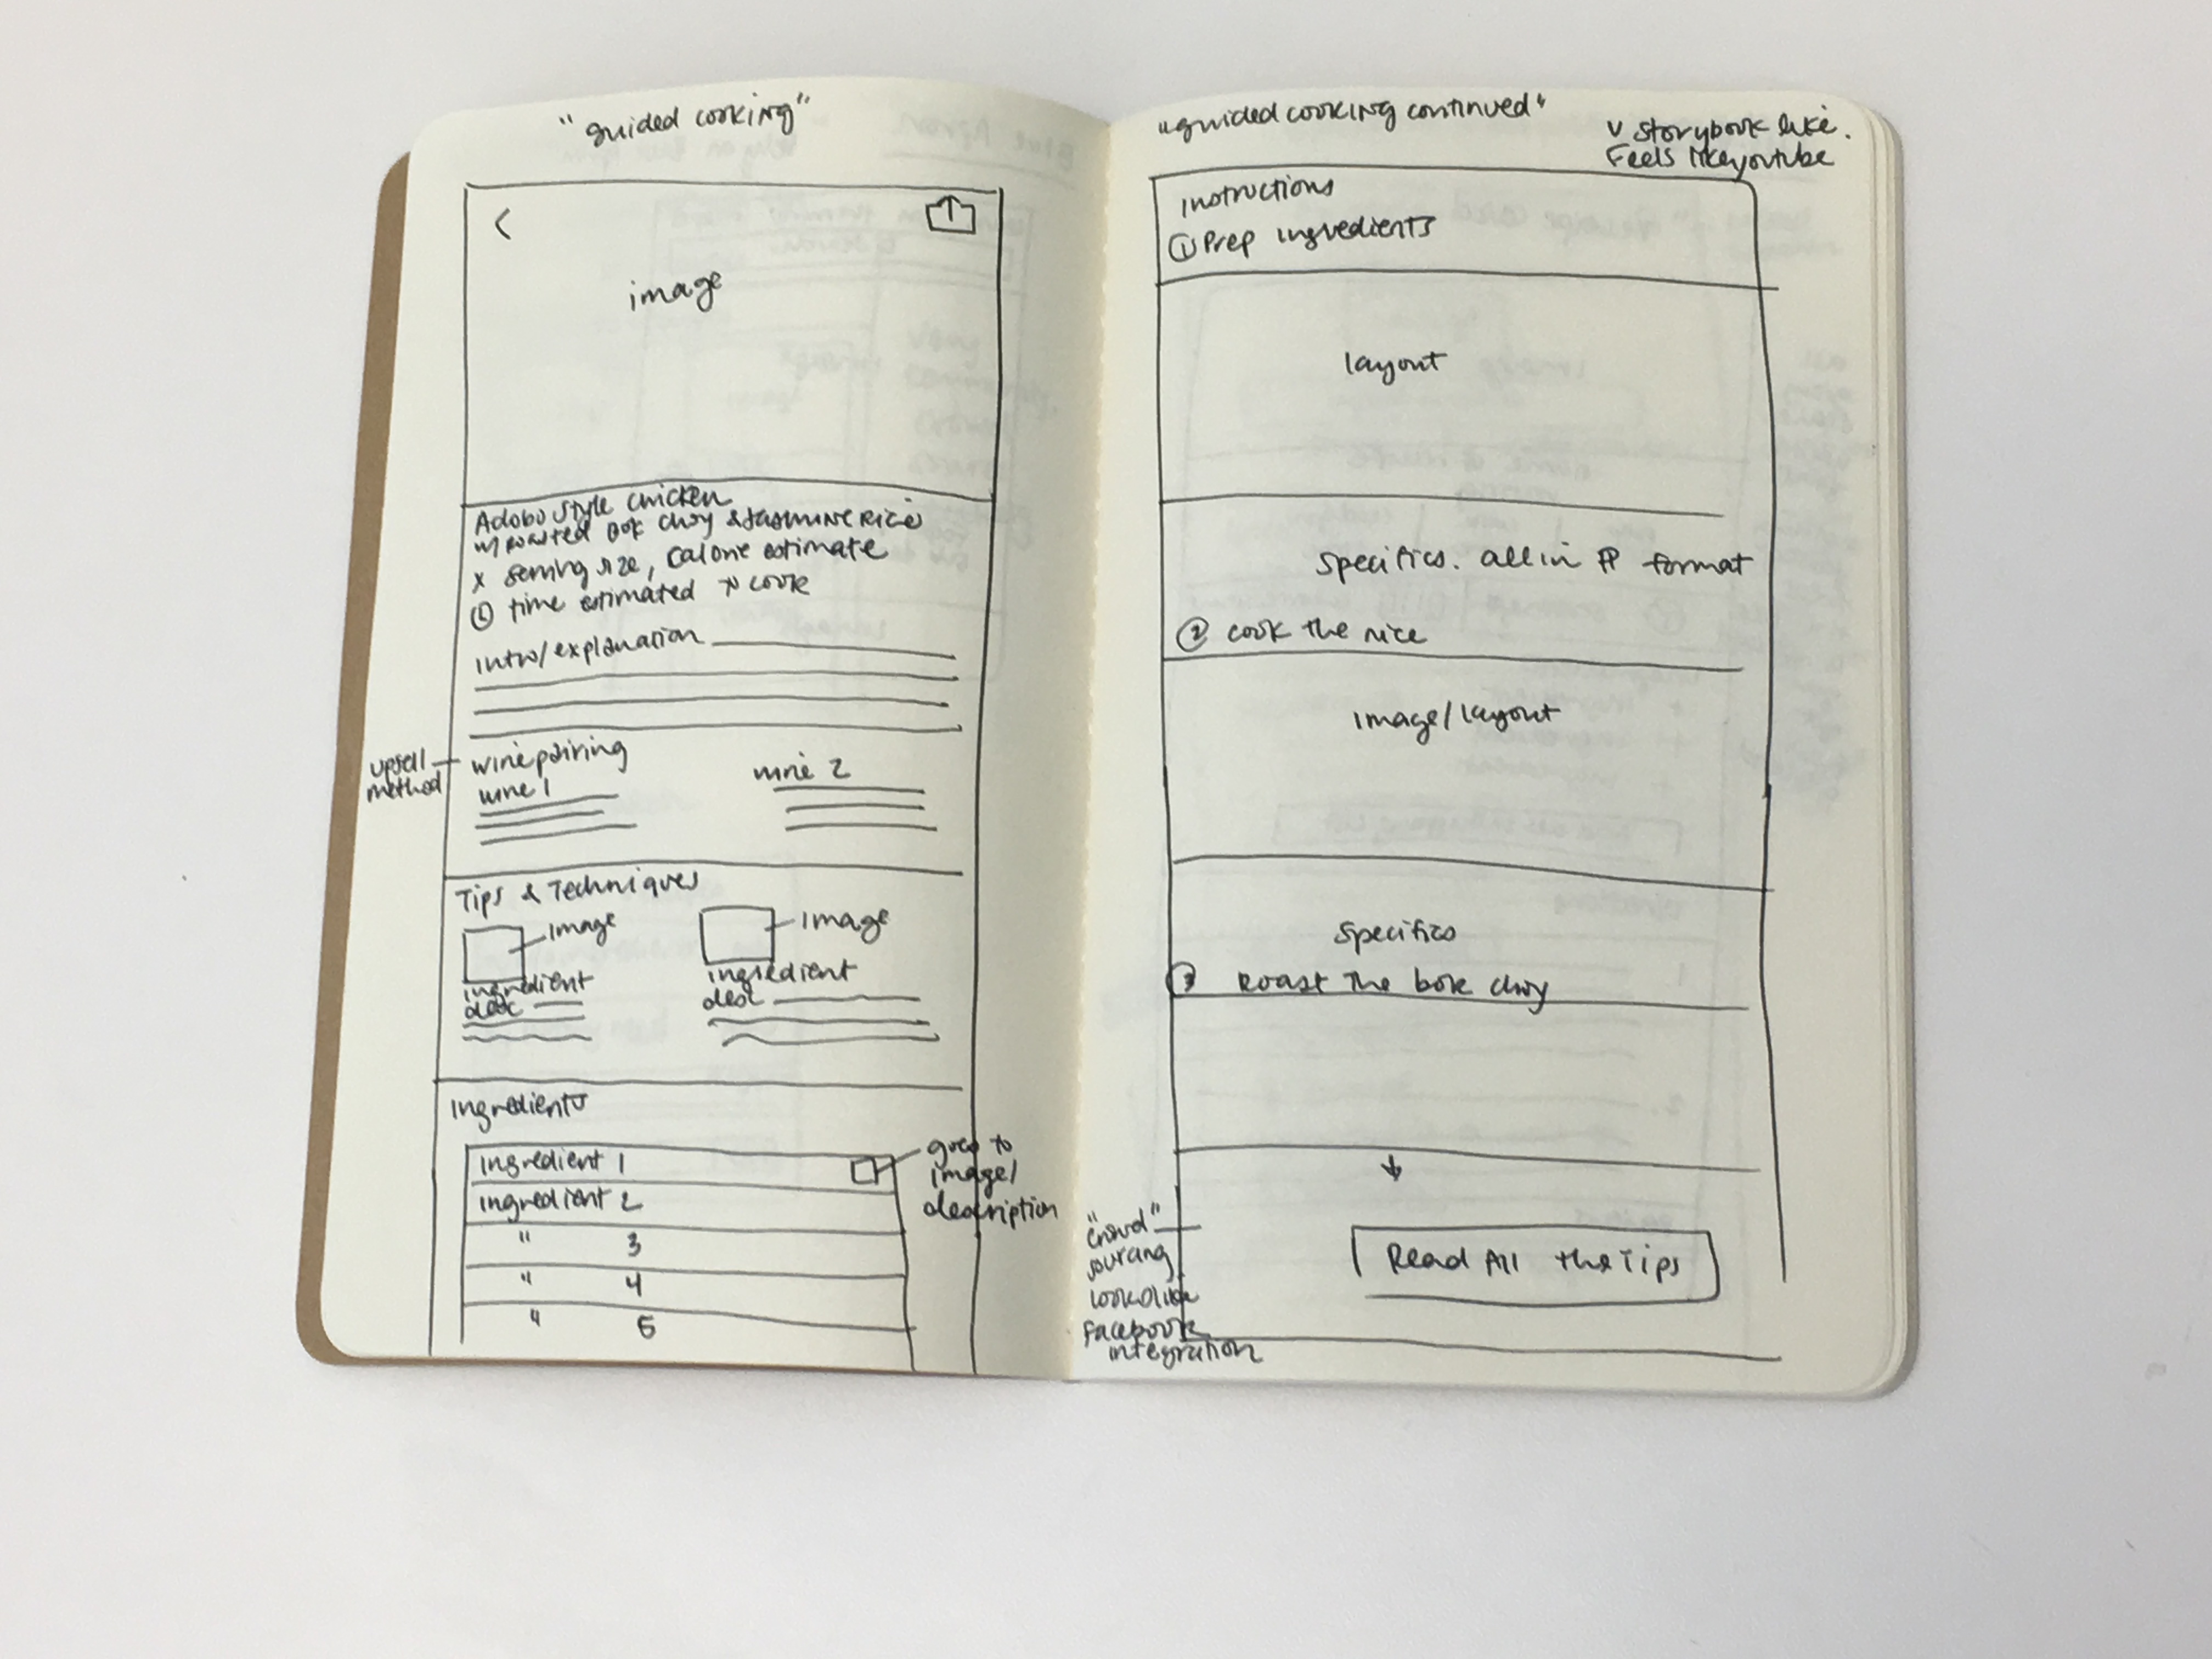 "guided cooking"
image
Adobo style chicken
w/ roasted Bok choy & Jasmine Rice
x serving size, calorie estimate
time estimated to cook
intro/explanation
upsell
method
wine pairing
wine 1
wine 2
Tips & Techniques
image
image
ingredient
desc
ingredient
desc
Ingredients
Ingredient 1
Ingredient 2
" 3
" 4
" 5
goes to
image/
description
"guided cooking continued"
v storybook like.
Feels like youtube
Instructions
① Prep ingredients
layout
Specifics. all in ¶ format
② cook the rice
image/layout
Specifics
③ Roast the bok choy
"crowd"
sourcing
Facebook
integration
Read All the Tips